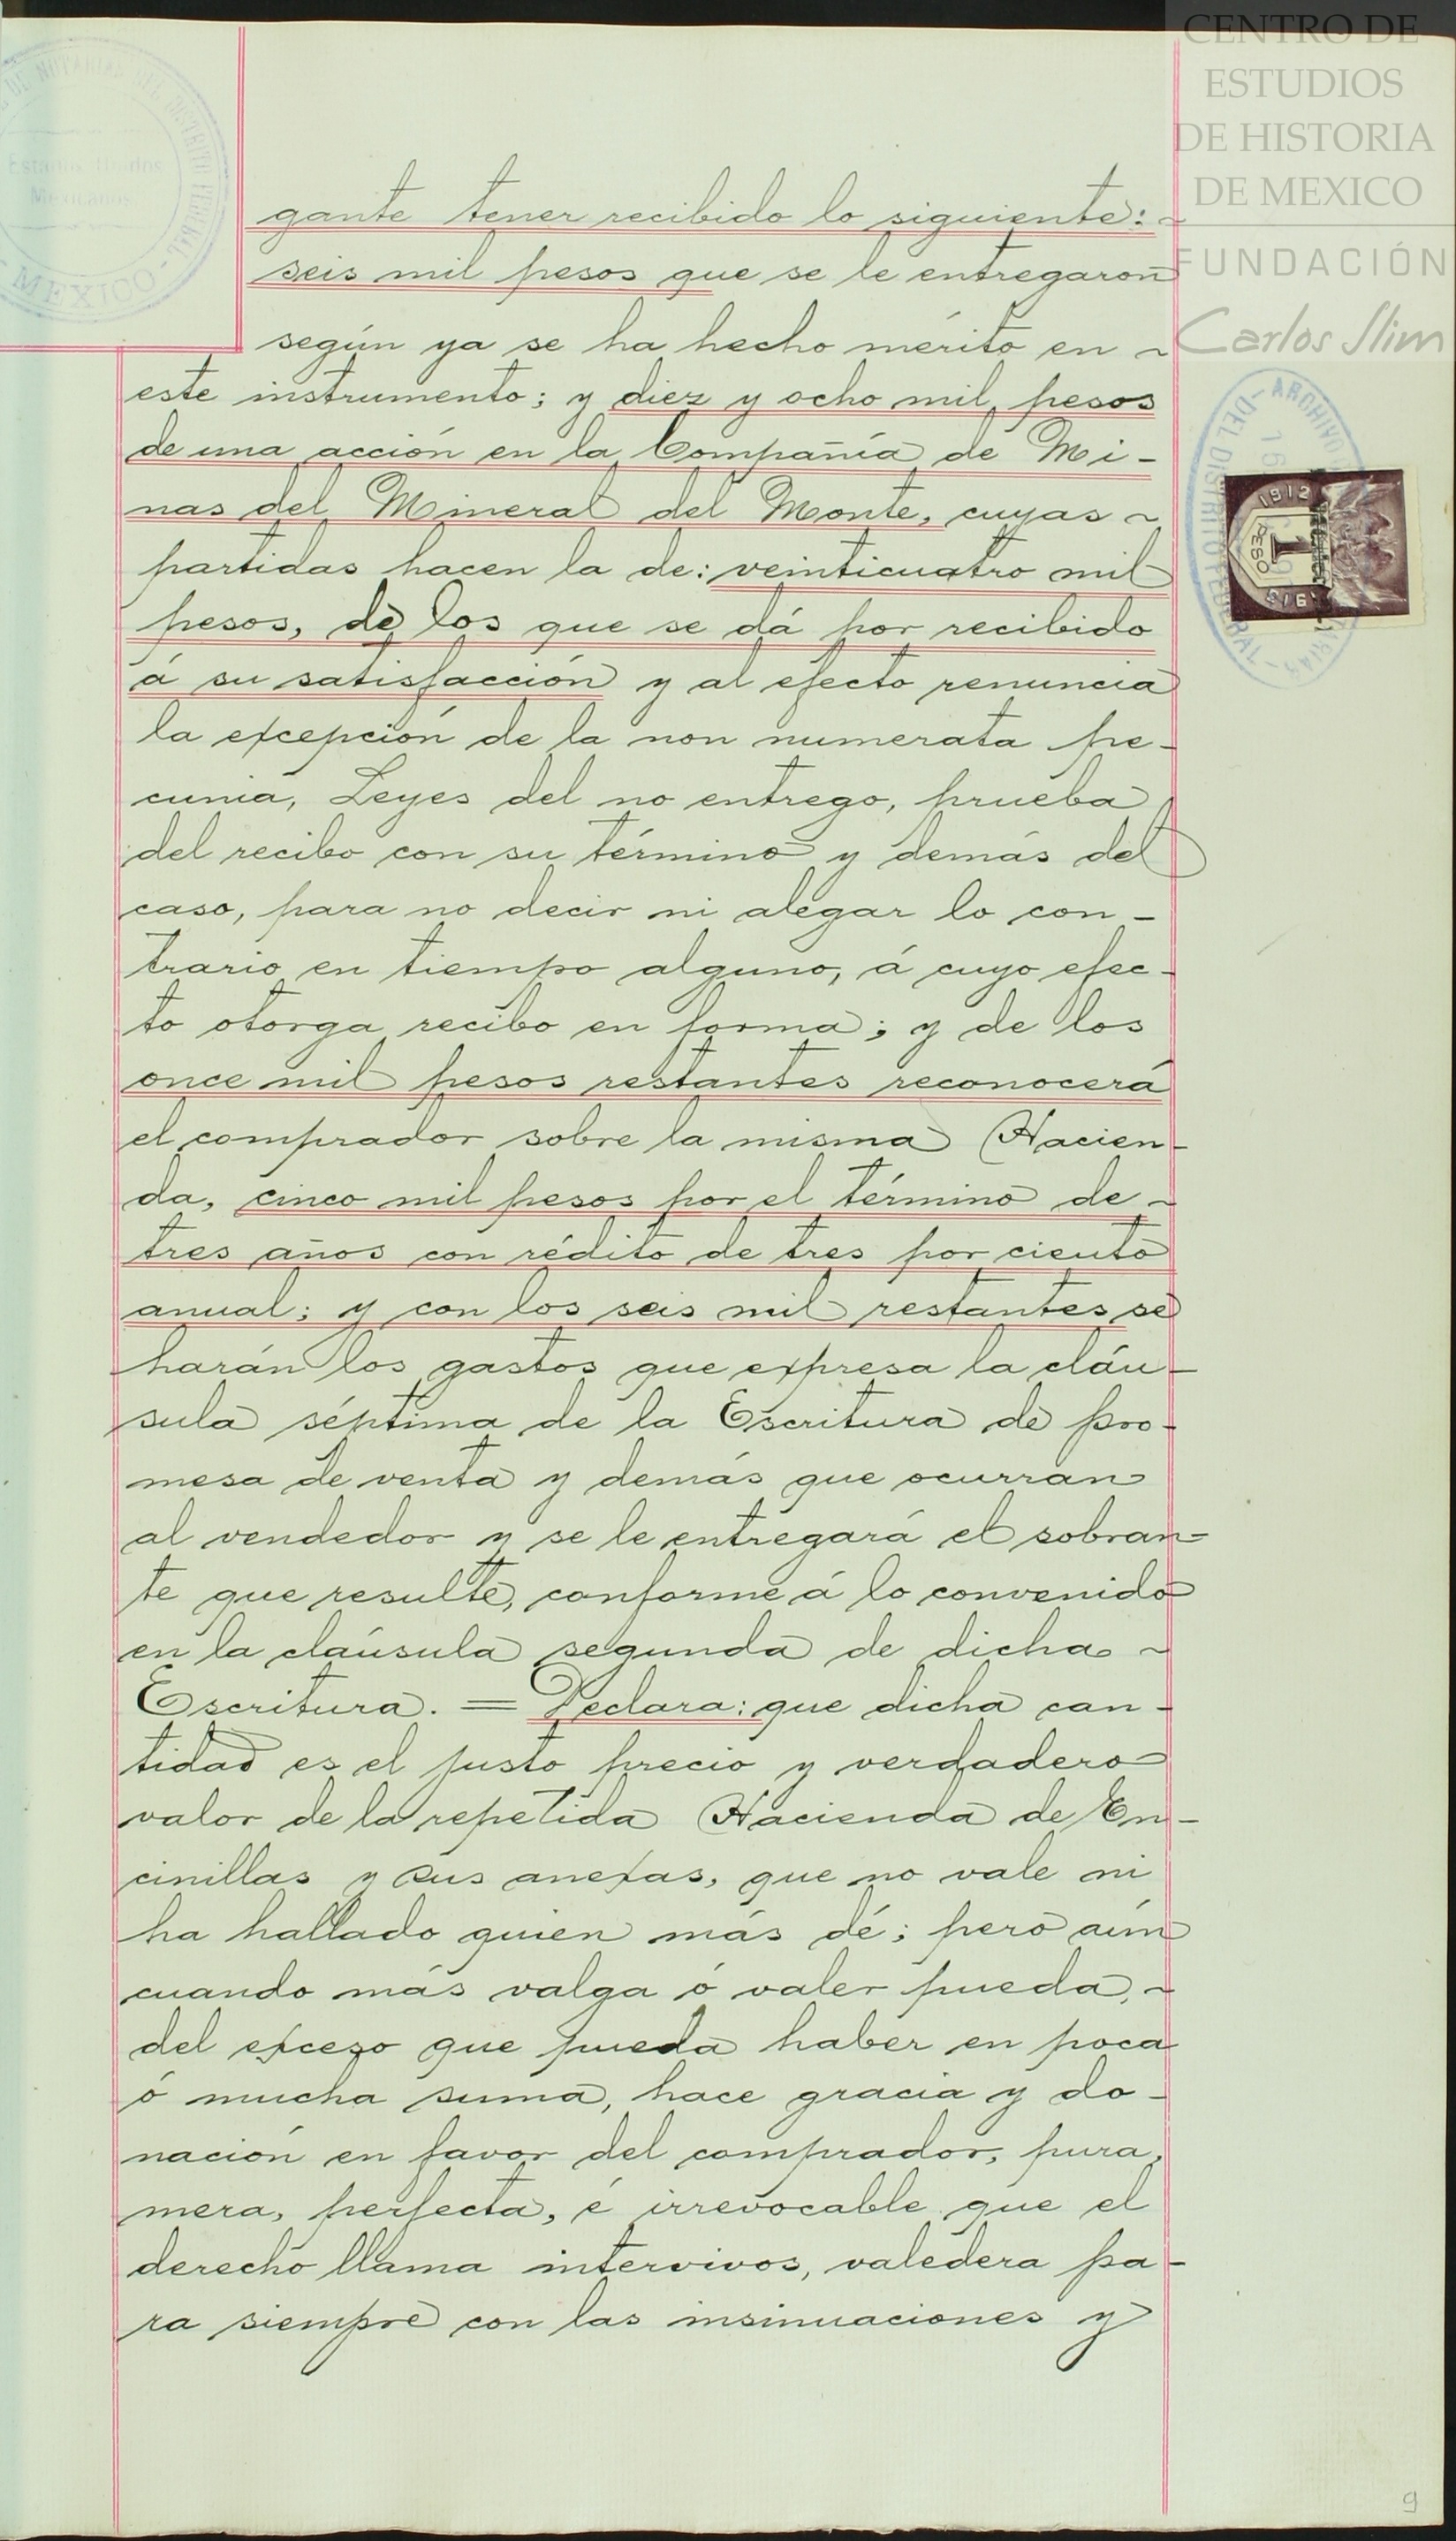 CENTRO DE
ESTUDIOS
DE HISTORIA
DE MEXICO
FUNDACIÓN
Carlos Slim
DE NOTARIAS DEL DISTRITO FEDERAL
Estados Unidos
Mexicanos
- MEXICO -
gante tener recibido lo siguiente: ~
seis mil pesos que se le entregaron
según ya se ha hecho mérito en ~
este instrumento; y diez y ocho mil pesos
de una acción en la Compañía de Mi-
nas del Mineral del Monte, cuyas ~
partidas hacen la de: veinticuatro mil
pesos, de los que se dá por recibido
á su satisfacción y al efecto renuncia
la excepción de la non numerata pe-
cunia, Leyes del no entrego, prueba
del recibo con su término y demás del
caso, para no decir ni alegar lo con-
trario en tiempo alguno, á cuyo efec-
to otorga recibo en forma; y de los
once mil pesos restantes reconocerá
el comprador sobre la misma Hacien-
da, cinco mil pesos por el término de ~
tres años con rédito de tres por ciento
anual; y con los seis mil restantes se
harán los gastos que expresa la cláu-
sula séptima de la Escritura de pro-
mesa de venta y demás que ocurran
al vendedor y se le entregará el sobran-
te que resulte, conforme á lo convenido
en la claúsula segunda de dicha ~
Escritura. = Declara: que dicha can-
tidad es el justo precio y verdadero
valor de la repetida Hacienda de En-
cinillas y sus anexas, que no vale ni
ha hallado quien más dé; pero aún
cuando más valga ó valer pueda, ~
del exceso que pueda haber en poca
ó mucha suma, hace gracia y do-
nación en favor del comprador, pura,
mera, perfecta, é irrevocable que el
derecho llama intervivos, valedera pa-
ra siempre con las insinuaciones y
ARCHIVO
DEL DISTRITO FEDERAL
1912
1
PESO
1913
9